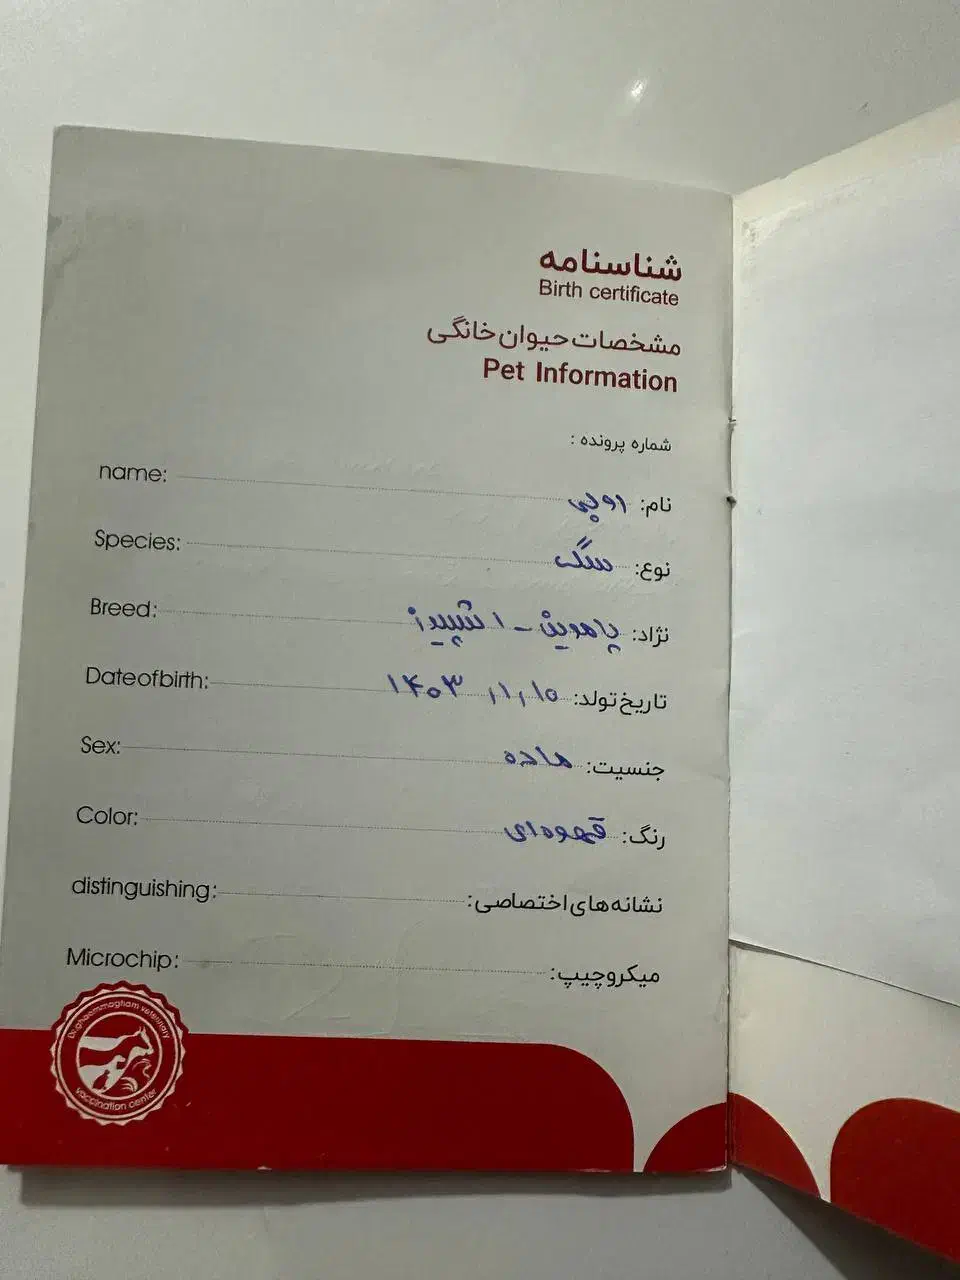 شناسنامه
Birth certificate
مشخصات حیوان خانگی
Pet Information
شماره پرونده :
name: نام: روپی
Species: نوع: سگ
Breed: نژاد: پامرین - اشپیتز
Dateofbirth: تاریخ تولد: ۱۴۰۳,۱۱,۱۵
Sex: جنسیت: ماده
Color: رنگ: قهوه‌ای
distinguishing: نشانه‌های اختصاصی:
Microchip: میکروچیپ:
veterinary
vaccination center